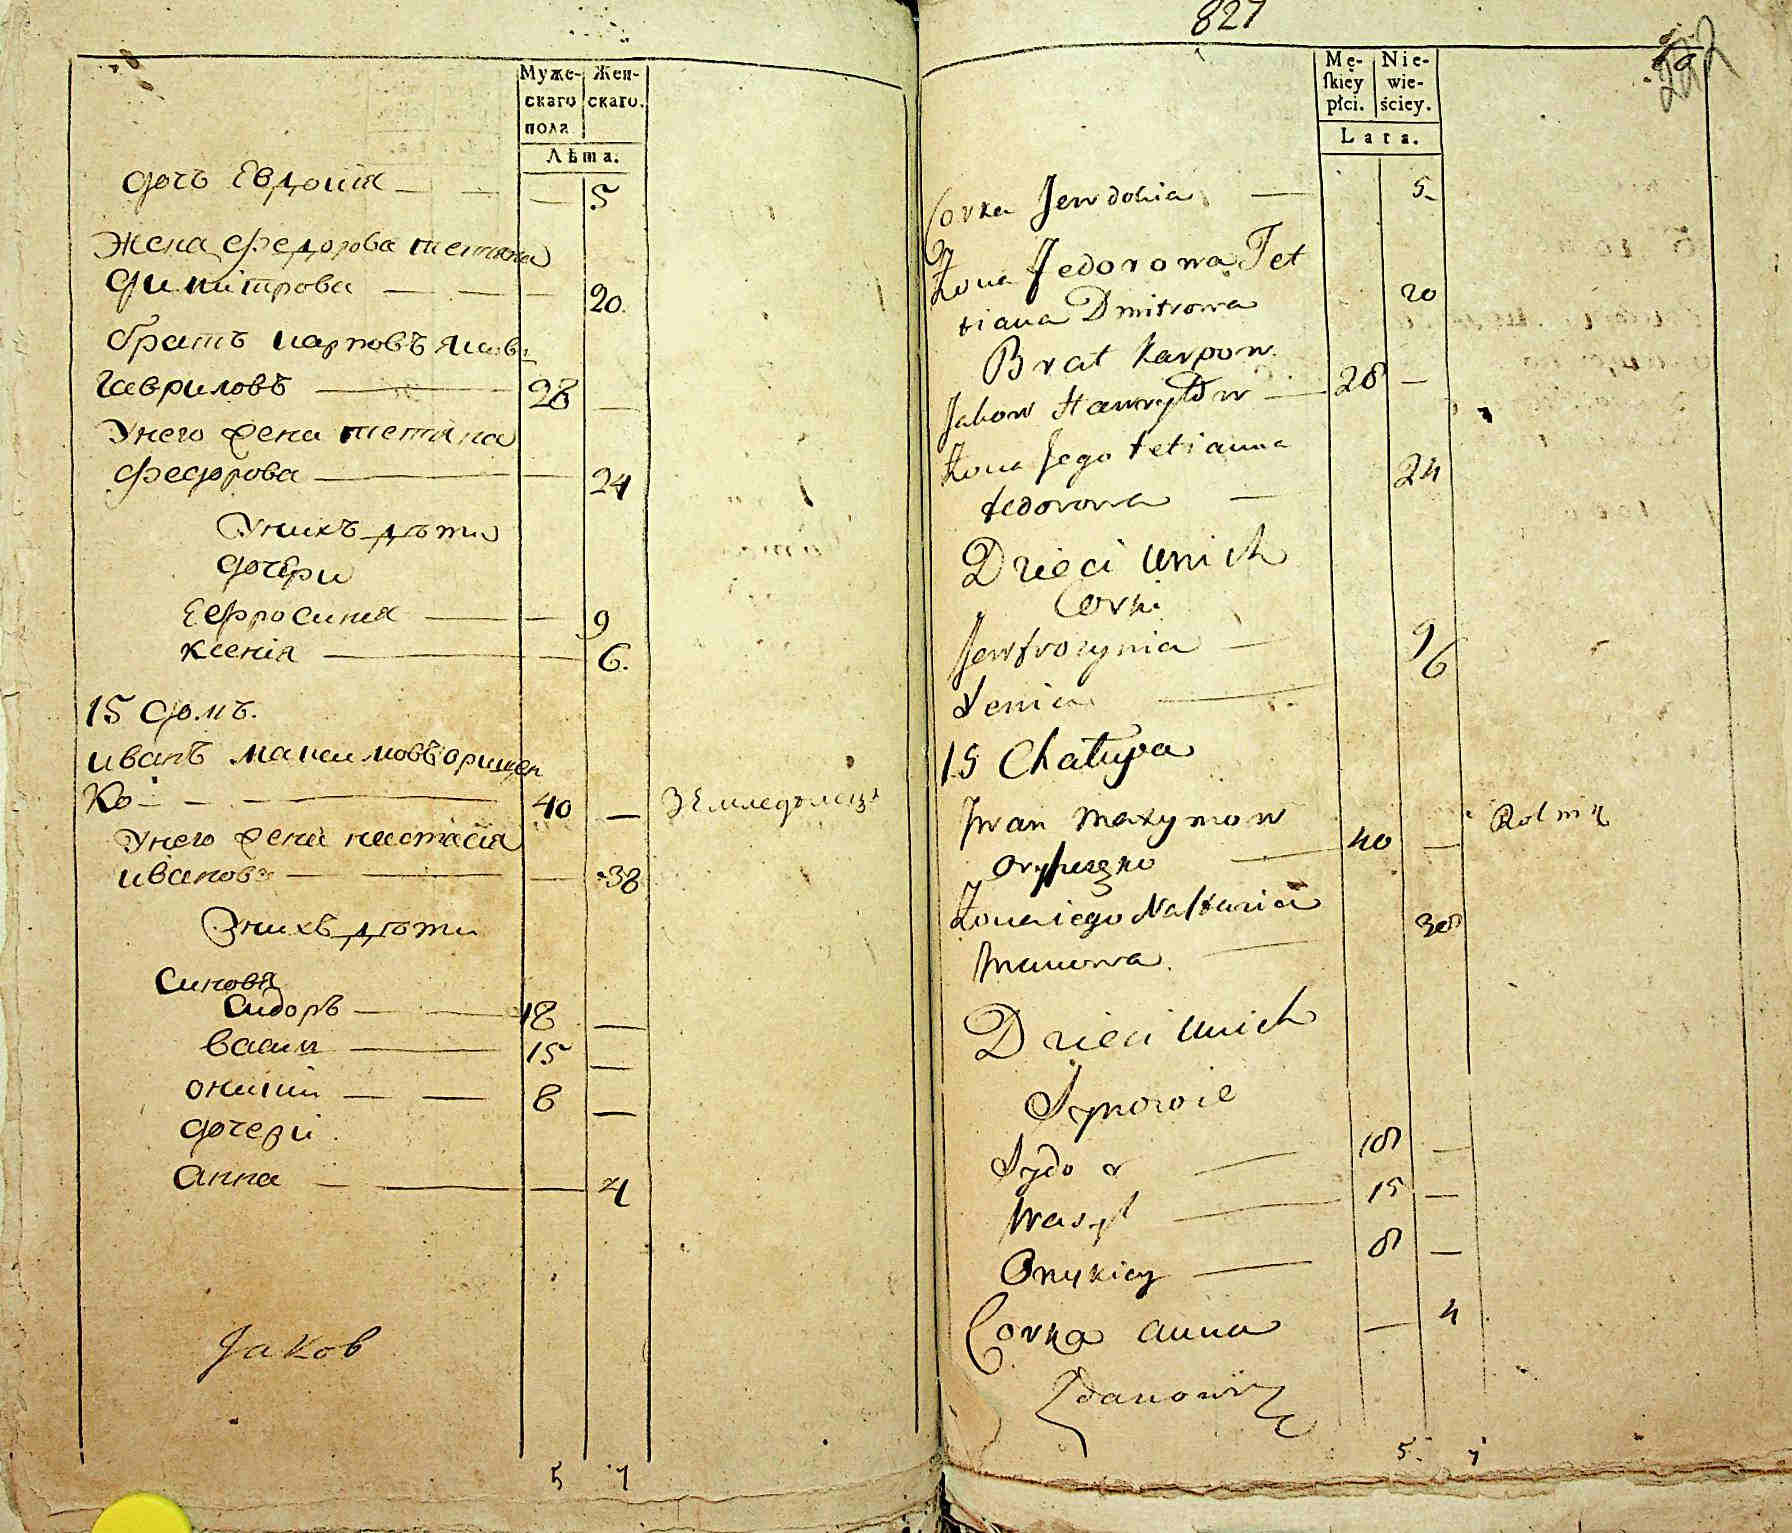 Муже-
скаго
пола
Жен-
скаго.
Лѣта.
дочъ Евдокия — — — 5
Жена Федорова тетяна
димитрова — — — 20.
братъ карповъ яков
гавриловъ — 28 —
Унего жена тетяна
федорова — — 24
Унихъ дѣти
дочери
Еефросиния — — 9
ксенія — — 6.
15 домъ.
иванъ максимовъ орищен
ко — — 40 — Земледѣлецъ
Унего жена настасія
иванова — — — 38
Унихъ дѣти
Синовя
Сидоръ — — 18 —
васил — 15 —
оникій — — 8 —
дочери
анна — — — 4
Jakob
5 7
827
222
Mę-
ſkiey
płci.
Nie-
wie-
ściey.
Lata.
Corka Jewdokia — 5
Żona Fedorowa Tet
tiana Dmitrowa 20
Brat Karpow
Jakow Hawryłow — 28 —
Żona Jego tetianna
fedorowa — 24
Dzieci unich
Corki
Jewfrozynia — 9
Xenia — 6
15 Chałupa
Iwan Maxymow
Oryszczko — 40 — Rolnik
Żona iego Nastazia
Iwanowa — 38
Dzieci unich
Synowie
Sydor — 18 —
Wasyl — 15 —
Onykiey — 8 —
Corka anna — 4
Zdanowicz
5. 7